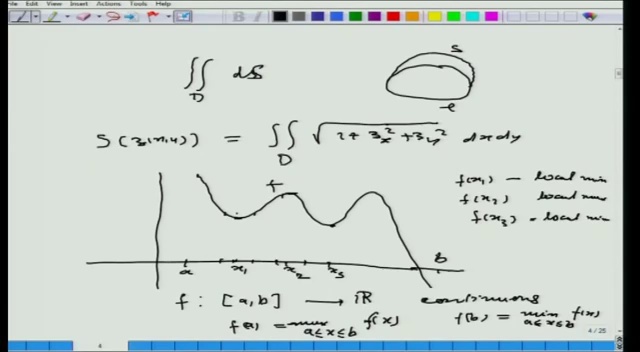 File Edit View Insert Actions Tools Help
∬ dS
D
S
e
S(z(x,y)) = ∬ √(1+z_x²+z_y²) dxdy
D
f
f(x₁) – local min
f(x₂) local max
f(x₃) – local min
a x₁ x₂ x₃ b
f : [a,b] → ℝ continuous
f(a) = max f(x) f(b) = min f(x)
a≤x≤b a≤x≤b
4 4 / 25